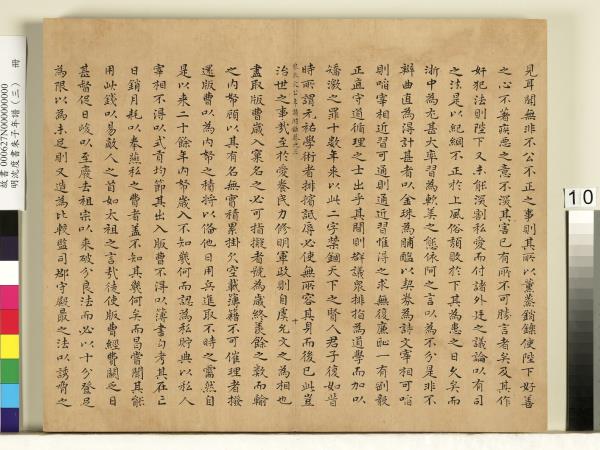 見耳聞無非不公不正之事則其所以薰蒸銷鑠使陛下好善
之心不著疾惡之意不深其害已有所不可勝言者矣及其作
奸犯法則陛下又未能深割私愛而付諸外廷之議論以有司
之法是以紀綱不正於上風俗頹敗於下其為患之日久矣而
浙中為尤甚大率習為軟美之態依阿之言以為不分是非不
辯曲直為得計甚者以金珠為脯醢以契券為詩文宰相可啗
則啗宰相近習可通則通近習惟得之求無復廉恥一有剛毅
正直守道循理之士出乎其間則群議衆排指為道學而加以
矯激之罪十數年來以此二字禁錮天下之賢人君子復如昔
時所謂元祐學術者排擯詆辱必使無所容其身而後已此豈
治世之事哉至於愛養民力修明軍政則自虞允文之為相也
盡取版曹歲入窠名之必可指擬者號為歲終羨餘之數而輸
之內帑顧以其有名無實積累掛欠空載簿籍不可催理者撥
還版曹以為內帑之積將以備他日用兵進取不時之需然自
是以來二十餘年內帑歲入不知幾何而認為私貯典以私人
宰相不得以式貢均節其出入版曹不得以簿書勾考其在亡
日銷月耗以奉燕私之費者蓋不知其幾何矣而曷嘗聞其能
用此錢以易敵人之首如太祖之言哉徒使版曹經費闕乏日
甚督促日峻以至廢去祖宗以來破分良法而必以十分登足
為限以為未足則又造為比較監司郡守殿最之法以誘脅之
故書000627N000000000
明沈度書朱子年譜(三) 冊
10